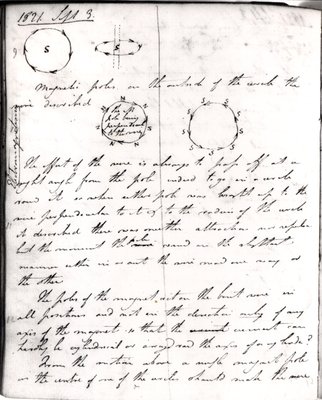 1821 Sept 3.
S
S
Magnetic poles on the outside of the circle the
wire described
N N N N N N N
The N
pole being
perpendicular
to the wire
S S S S S S S S
Electromagnetism
The effort of the wire is always to pass off at a
right angle from the pole indeed to go in a circle
round it so when either pole was brought up to the
wire perpendicular to it & to the radius of the circle
it described there was neither attraction nor repulsion
but the moment the pole varied in the slightest
manner either in or out the wire moved one way or
the other
The poles of the magnet act on the bent wire in
all positions and not in the direction only of any
axis of the magnet so that the current can
hardly be cylindrical or arranged round the axis of a cylinder?
From the motion above a single magnet pole
in the centre of one of the circles should make the wire